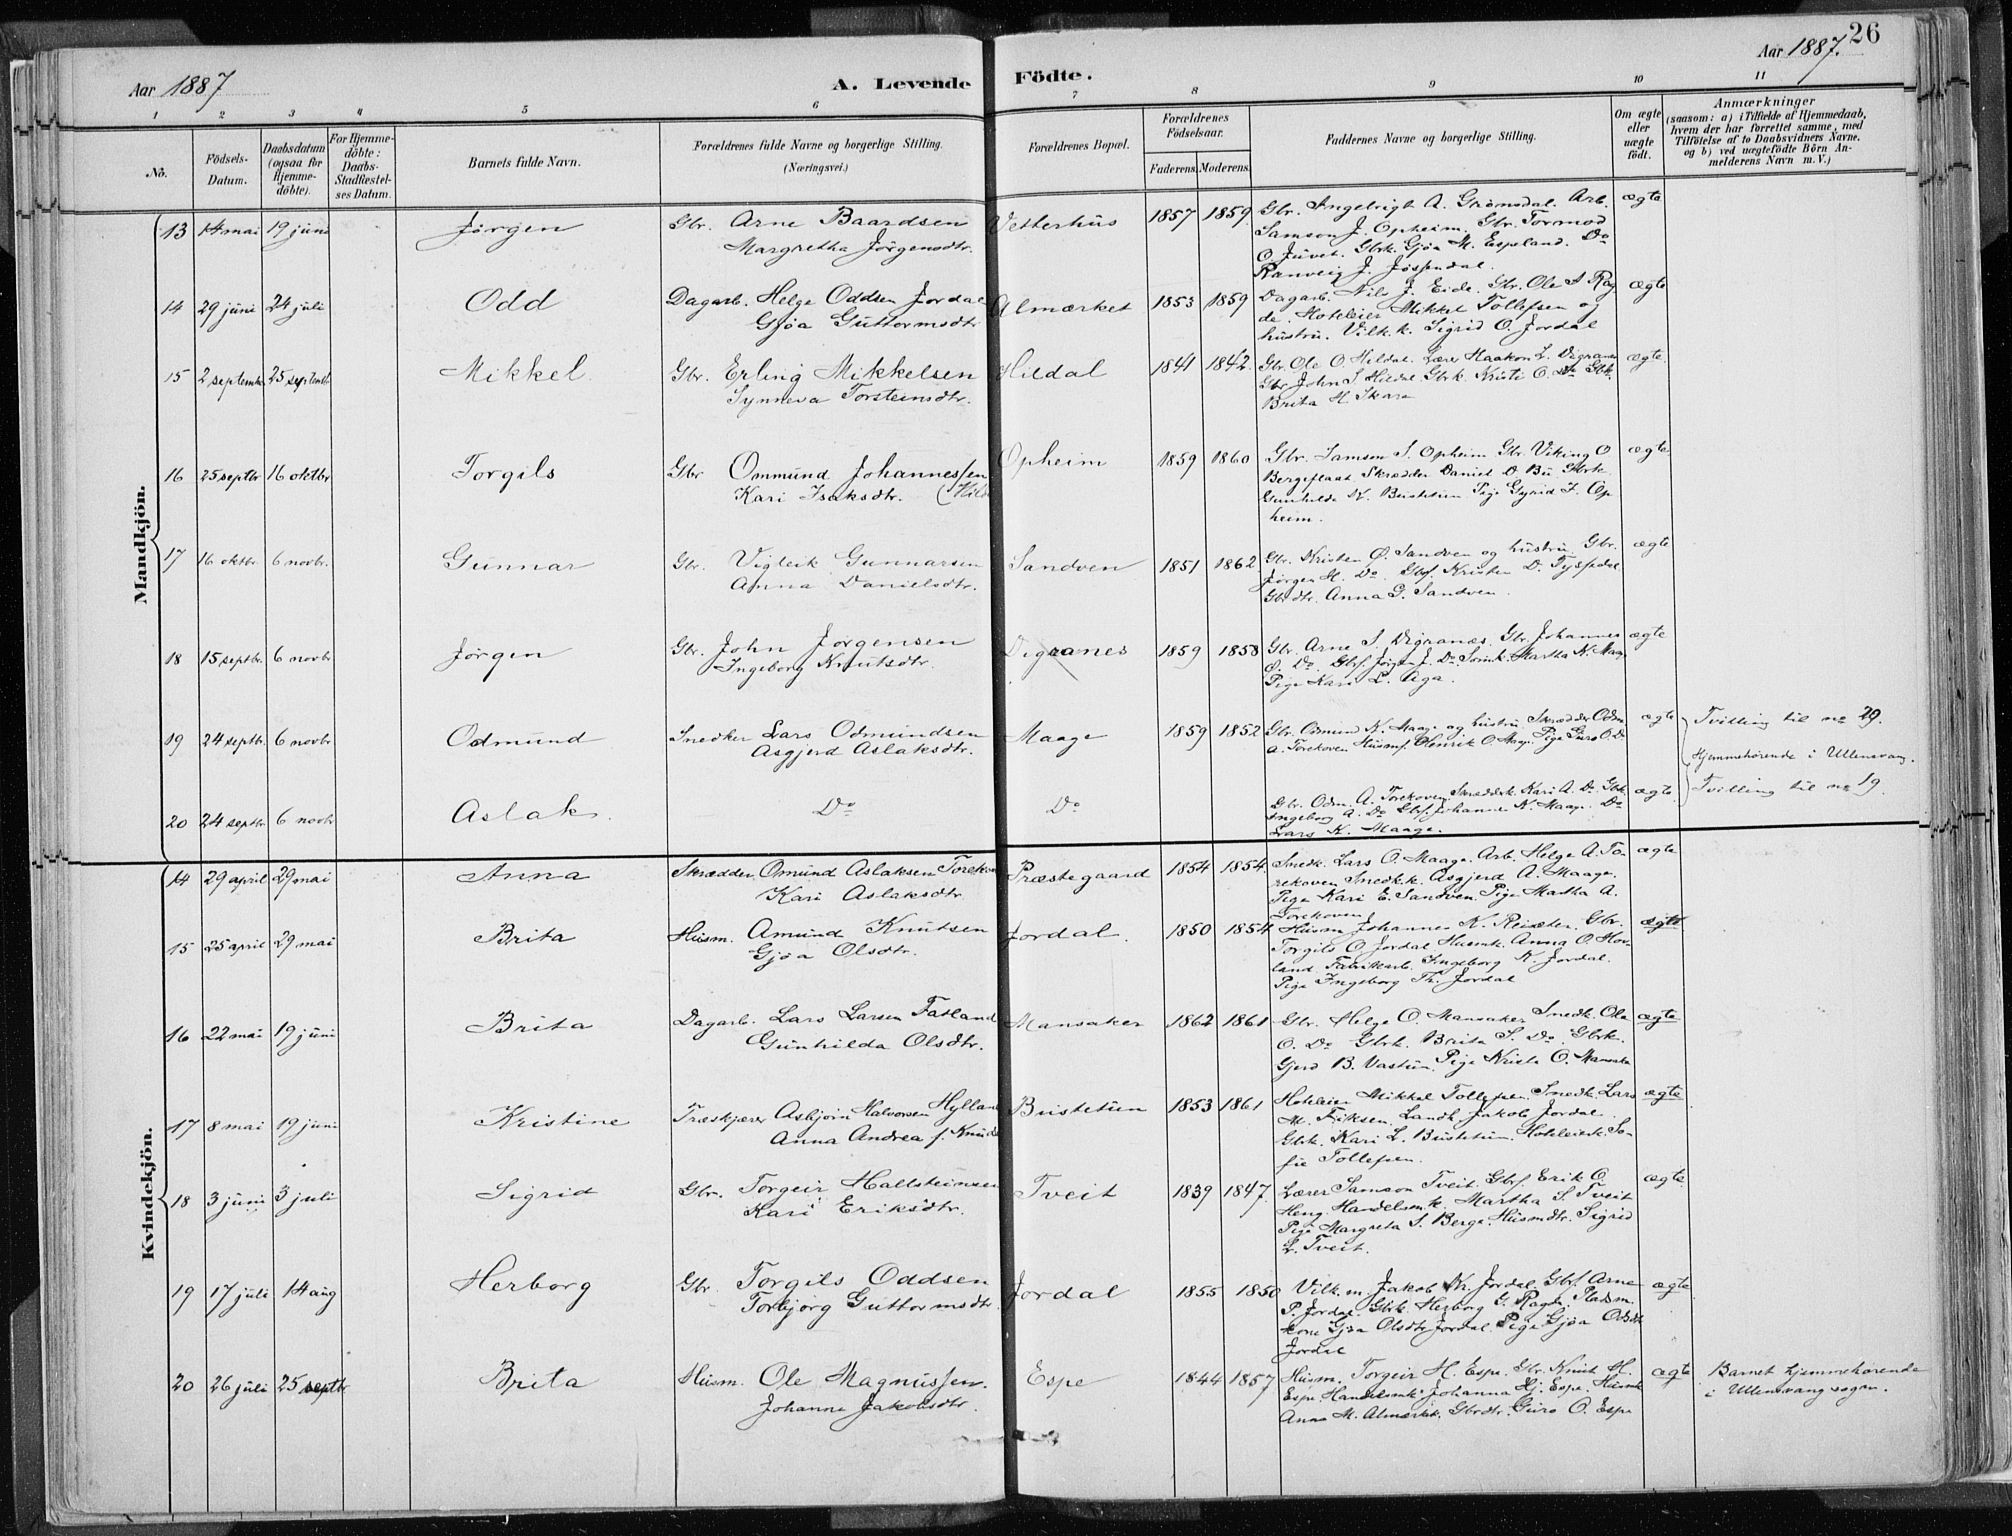 26
Aar 1887
A. Levende Födte.
Aar 1887.
1 2 3 4 5 6 7 8 9 10 11
No.
Födsels-Datum.
Daabsdatum (ogsaa för Hjemme-döbte).
For Hjemme-döbte: Daabs-Stadfæstel-ses Datum.
Barnets fulde Navn.
Forældrenes fulde Navne og borgerlige Stilling.
(Næringsvei.)
Forældrenes Bopæl.
Forældrenes Födselsaar.
Faderens. Moderens.
Faddernes Navne og borgerlige Stilling.
Om ægte eller uægte födt.
Anmærkninger
(saasom: a) i Tilfælde af Hjemmedaab,
hvem der har forrettet samme, med
Tilföielse af to Daabsvidners Navne.
og b) ved uægtefödte Börn An-
melderens Navn m. V.)
Mandkjön.
13 14 mai 19 juni Jørgen Gbr. Arne Baardsen Vetterhus 1857 1859 Gbr. Ingebrigt A. Grønsdal. Arb. ægte
Margretha Jørgensdtr. Samson J. Opheim. Gbr. Tormod
O. Juvet. Gbrk. Gjøa M. Espeland. Do
Ranveig J. Jøssendal.
14 29 juni 24 juli Odd Dagarb. Helge Oddsen Jordal Almærket 1853 1859 Dagarb. Nils J. Eide. Gbr. Ole S Rag- ægte
Gjøa Guttormsdtr de. Hoteleier Mikkel Tollefsen og
hustru. Vilk. k. Sigrid O. Jordal
15 2 septemb. 25 septemb. Mikkel. Gbr. Erling Mikkelsen Hildal 1841 1842. Gbr. Ole O Hildal. Lærer Haakon L. Digranes ægte.
Synneva Torsteinsdtr. Gbr John S. Hildal Gbrk. Kristi O. Do Gbk.
Brita H. Skare
16 25 septbr 16 oktbr Torgils Gbr Ommund Johannessen Opheim 1859 1860 Gbr. Samson S. Opheim Gbr. Viking O ægte
Kari Isaksdtr. Bergeflaat Skrædder Daniel O. Bu Gbrk.
Gunhilda N. Bustetun Pige Gyrid I. Op
heim.
17 16 oktbr. 6 novbr. Gunnar Gbr. Vigleik Gunnarsen Sandven 1851 1862 Gbr. Kristen O. Sandven og hustru. Gbr. ægte
Anna Danielsdtr. Jørgen H. Do. Gbf. Kristen D. Tyssedal
Gbrdtr. Anna G. Sandven.
18 15 septbr. 6 novbr Jørgen Gbr. John Jørgensen Digranes 1859 1858 Gbr. Arne S. Digranes. Gbr. Johannes ægte
Ingeborg Knutsdtr. O. Do. Gbf. Jørgen J. Do. Martha K. Maage
Pige Kari L. Aga.
19 24 septbr. 6 novbr Odmund Snedker Lars Odmundsen Maage 1859 1852 Gbr. Odmund K. Maage og hustru. Skrædder Odm. ægte Tvilling til no 20.
Asgjerd Aslaksdtr. A. Torekoven Husmf. Henrik O. Maage. Pige Guro O. Do
Hjemmehørende i Ullensvang.
20 24 septbr 6 novbr Aslak. Do Do Gbr. Odm. A. Torekoven Skrædderk. Kari A. Do. Gbk. ægte. Tvilling til no 19.
Ingeborg A. Do Gbf. Johannes K. Maage. Do
Lars K. Maage.
Kvindekjön.
14 29 april 29 mai Anna Skrædder Omund Aslaksen Torekoven Præstegaard 1854 1854. Snedk. Lars O. Maage. Arb. Helge A. To- ægte
Kari Aslaksdtr. rekoven Snedk.k. Asgjerd A. Maage.
Pige Kari E. Sandven. Pige Martha A.
Torekoven
15 25 april 29 mai Brita Husm. Amund Knutsen Jordal. 1850 1854. Husm Johannes K. Reisæter. Gbr. ægte
Gjøa Olsdtr. Torgils O. Jordal Husmk. Anna O. Hov-
land. Fabrikarb. Ingeborg K. Jordal.
Pige Ingeborg Th. Jordal
16 22 mai 19 juni Brita Dagarb. Lars Larsen Fatland Mansaker 1862 1861 Gbr. Helge O. Mansaker Snedk. Ole ægte
Gunhilda Olsdtr. O. Do Gbrk. Brita S. Do. Gbrk.
Gjerd B. Vastun. Pige Krista O. Mansaker
17 8 mai 19 juni Kristine Træskjærer Asbjørn Halvorsen Hylland Bustetun 1853 1861 Hoteleier Mikkel Tollefsen. Snedk. Lars ægte
Anna Andrea f. Knuds M. Eriksen. Landh. Jakob Jordal.
Gbrk. Kari L. Bustetun. Hoteleierk. So-
fie Tollefsen.
18 3 juni 3 juli Sigrid Gbr. Torgeir Hallsteinsen Tveit 1839 1847. Lærer Samson Tveit. Gbf. Erik O. ægte.
Kari Eriksdtr. Heng. Handelsm.k. Martha S. Tveit
Pige Margreta S. Berge. Husmdtr. Sigrid
L. Tveit.
19 17 juli 14 aug Herborg Gbr. Torgils Oddsen Jordal 1855 1850 Vilk. m Jakob Kr. Jordal. Gbf. Arne ægte
Torbjørg Guttormsdtr. P. Jordal. Gbrk Herborg G. Ragde. Pladsm.
kone Gjøa Olsdtr Jordal. Pige Gjøa Oddsdtr
Jordal
20 26 juli 25 septbr. Brita Husm. Ole Magnussen. Espe 1844 1857 Husm. Torgeir H. Espe. Gbr. Knut H. ægte Barnet hjemmehørende
Johanne Jakobsdtr. Espe. Handelsmk Johanna Hj. Espe. Husmk i Ullensvang sogn.
Anna M. Almerket. Gbrdtr. Guro O. Espe